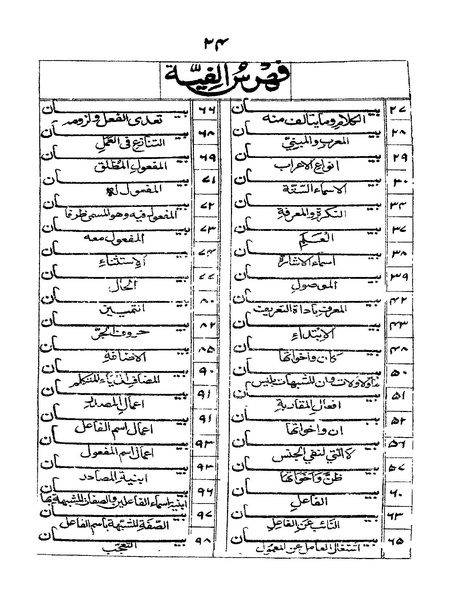 ٢٤
فهرس الفية
٢٧ بيان
الكلام وما يتألف منه
٢٨ بيان
المعرب والمبني
٢٩ بيان
انواع الاعراب
٣٠ بيان
الاسماء الستة
٣٤ بيان
النكرة والمعرفة
٣٧ بيان
العلم
٣٨ بيان
اسماء الاشارة
٣٩ بيان
الموصول
٤٢ بيان
المعرف باداة التعريف
٤٣ بيان
الابتداء
٤٨ بيان
كان واخواتها
٥٠ بيان
ما ولا ولات وان المشبهات بليس
٥١ بيان
افعال المقاربة
٥٢ بيان
ان واخواتها
٥٦ بيان
لا التي لنفي الجنس
٥٧ بيان
ظن واخواتها
٦٠ بيان
الفاعل
٦٣ بيان
النائب عن الفاعل
٦٥ بيان
اشتغال العامل عن المعمول
٦٦ بيان
تعدى الفعل ولزومه
٦٨ بيان
التنازع في العمل
٦٩ بيان
المفعول المطلق
٧١ بيان
المفعول له
٧٢ بيان
المفعول فيه وهو المسمى ظرفا
٧٣ بيان
المفعول معه
٧٤ بيان
الاستثناء
٧٧ بيان
الحال
٨٠ بيان
التمييز
٨٢ بيان
حروف الجر
٨٥ بيان
الاضافة
٩٠ بيان
المضاف الى ياء المتكلم
٩١ بيان
اعمال المصدر
٩١ بيان
اعمال اسم الفاعل
٩٣ بيان
اعمال اسم المفعول
٩٣ بيان
ابنية المصادر
٩٦ بيان
ابنية اسماء الفاعلين والصفات المشبهة بها
٩٧ بيان
الصفة المشبهة باسم الفاعل
٩٨ بيان
التعجب